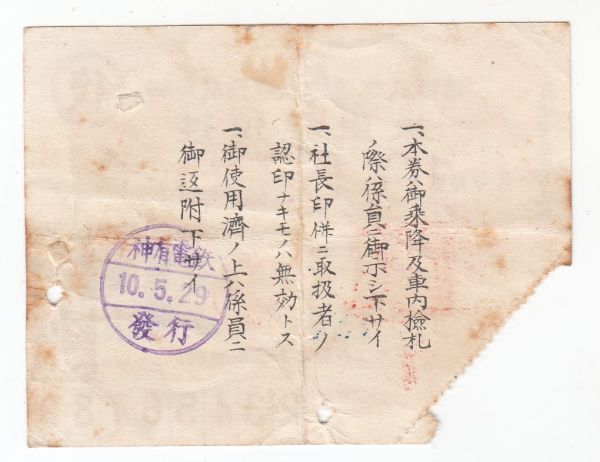 一、本券ハ御乘降及車内撿札
ノ際ハ係員ニ御示シ下サイ
一、社長印併ニ取扱者ノ
認印ナキモノハ無効トス
一、御使用濟ノ上ハ係員ニ
御返附下サイ
神有電鉄
10.5.29
發行